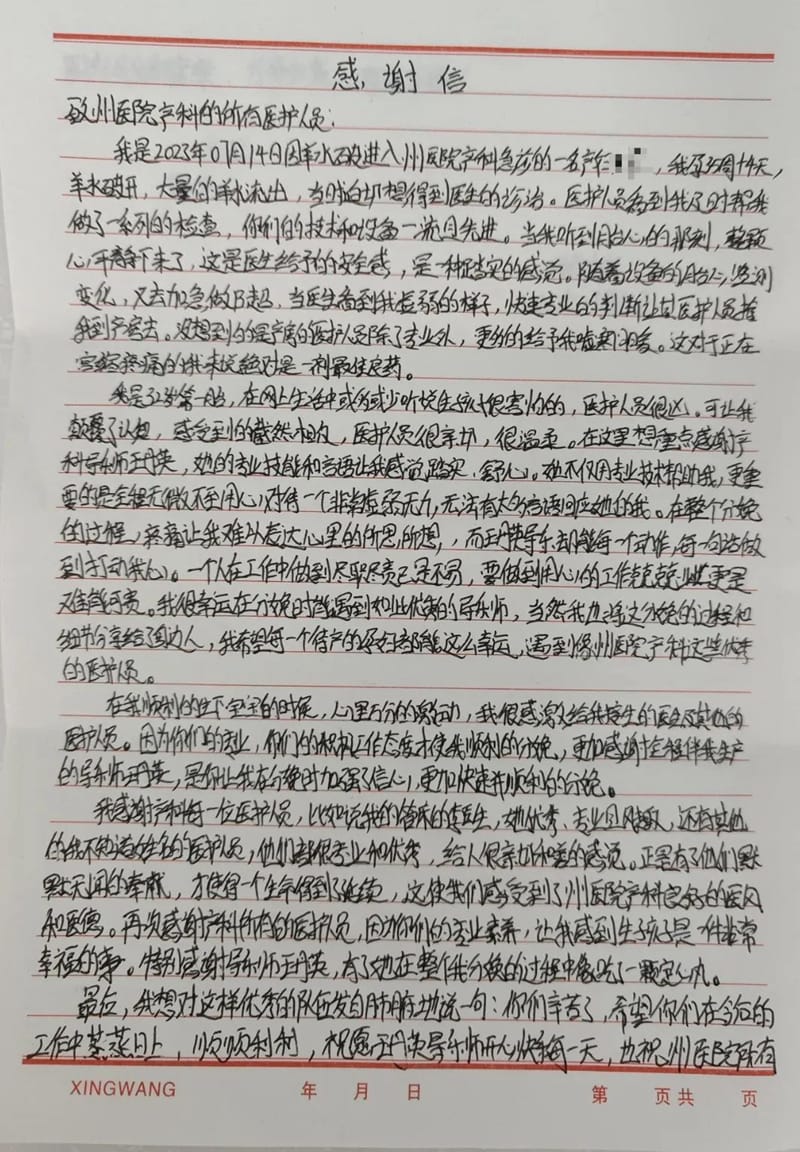 感谢信
致州医院产科的所有医护人员:
我是2023年07月14日因羊水破进入州医院产科急诊的一名产妇，我孕35周+4天，
羊水破开，大量的羊水流出，当时迫切想得到医生的诊治。医护人员看到我及时帮我
做了一系列的检查，你们的技术和设备一流且先进。当我听到胎心的那刻，整颗
心平静下来了，这是医生给予的安全感，是一种踏实的感觉。随着设备的胎心监测
变化，又去加急做B超，当医生看到我虚弱的样子，快速专业的判断让其医护人员推
我到产房去。没想到的是产房的医护人员除了专业外，更多的给予我嘘寒问暖。这对于正在
宫缩疼痛的我来说绝对是一剂最佳良药。
我是32岁第一胎，在网上生活中或多或少听说生孩子很害怕的，医护人员很凶。可让我
颠覆了认知，感受到的截然相反，医护人员很亲切，很温柔。在这里想重点感谢产
科导乐师王丹英，她的专业技能和言语让我感觉踏实、舒心。她不仅用专业技术帮助我，更重
要的是全程无微不至用心对待一个非常虚弱无力，无法有太多言语回应她的我。在整个分娩
的过程，疼痛让我难以表达心里的所思所想，而王丹英导乐却能每一个动作，每一句话做
到打动我心。一个人在工作中做到尽职尽责已是不易，要做到用心的工作兢兢业业更是
难能可贵。我很幸运在分娩时能遇到如此优秀的导乐师，当然我也将这分娩的过程和
细节分享给了身边人，我希望每一个待产的孕妇都能这么幸运，遇到像州医院产科这些优秀
的医护人员。
在我顺利的生下宝宝的时候，心里万分的激动，我很感激给我接生的医生及其他的
医护人员。因为你们的专业，你们的积极工作态度才使我顺利的分娩，更加感谢全程伴我生产
的导乐师王丹英，是你让我在分娩时加强了信心，更加快速并顺利的分娩。
我感谢产科每一位医护人员，比如说我的管床的医生，她优秀、专业且风趣，还有其他
的我不知道姓名的医护人员，他们都很专业和优秀，给人很亲切和善的感觉。正是有了他们默
默无闻的奉献，才使得一个生命得到了延续，这使我们感受到了州医院产科良好的医风
和医德。再次感谢产科所有的医护人员，因为你们的专业素养，让我感到生孩子是一件非常
幸福的事。特别感谢导乐师王丹英，有了她在整个我分娩的过程中像吃了一颗定心丸。
最后，我想对这样优秀的队伍发自肺腑地说一句:你们辛苦了，希望你们在今后的
工作中蒸蒸日上，顺顺利利，祝愿王丹英导乐师开心快乐每一天，也祝州医院所有
XINGWANG 年 月 日 第 页共 页